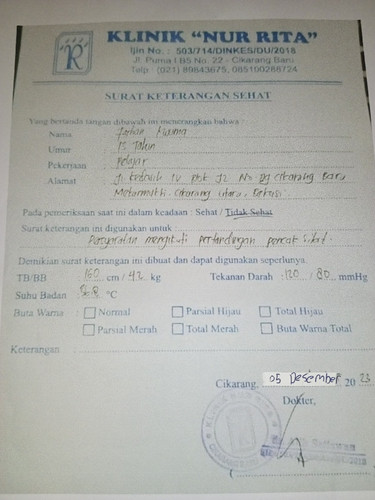 "R"
KLINIK "NUR RITA"
Ijin No. : 503/714/DINKES/DU/2018
Jl. Puma I B5 No. 22 - Cikarang Baru
Telp : (021) 89843675, 085100286724
SURAT KETERANGAN SEHAT
Yang bertanda tangan dibawah ini menerangkan bahwa :
Nama : Farhan
Umur : 15 Tahun
Pekerjaan : Pelajar
Alamat : Jl. IV Blok J2 No Cikarang Baru
Cikarang Utara, Bekasi.
Pada pemeriksaan saat ini dalam keadaan : Sehat / Tidak Sehat
Surat keterangan ini digunakan untuk :
Persyaratan mengikuti pertandingan pencak silat.
Demikian surat keterangan ini dibuat dan dapat digunakan seperlunya.
TB/BB : 160 cm / 42 kg Tekanan Darah : 120 / 80 mmHg
Suhu Badan : 36.8 °C
Buta Warna : Normal Parsial Hijau Total Hijau
Parsial Merah Total Merah Buta Warna Total
Keterangan :
Cikarang, 05 Desember 20 23
Dokter,
KLINIK NUR